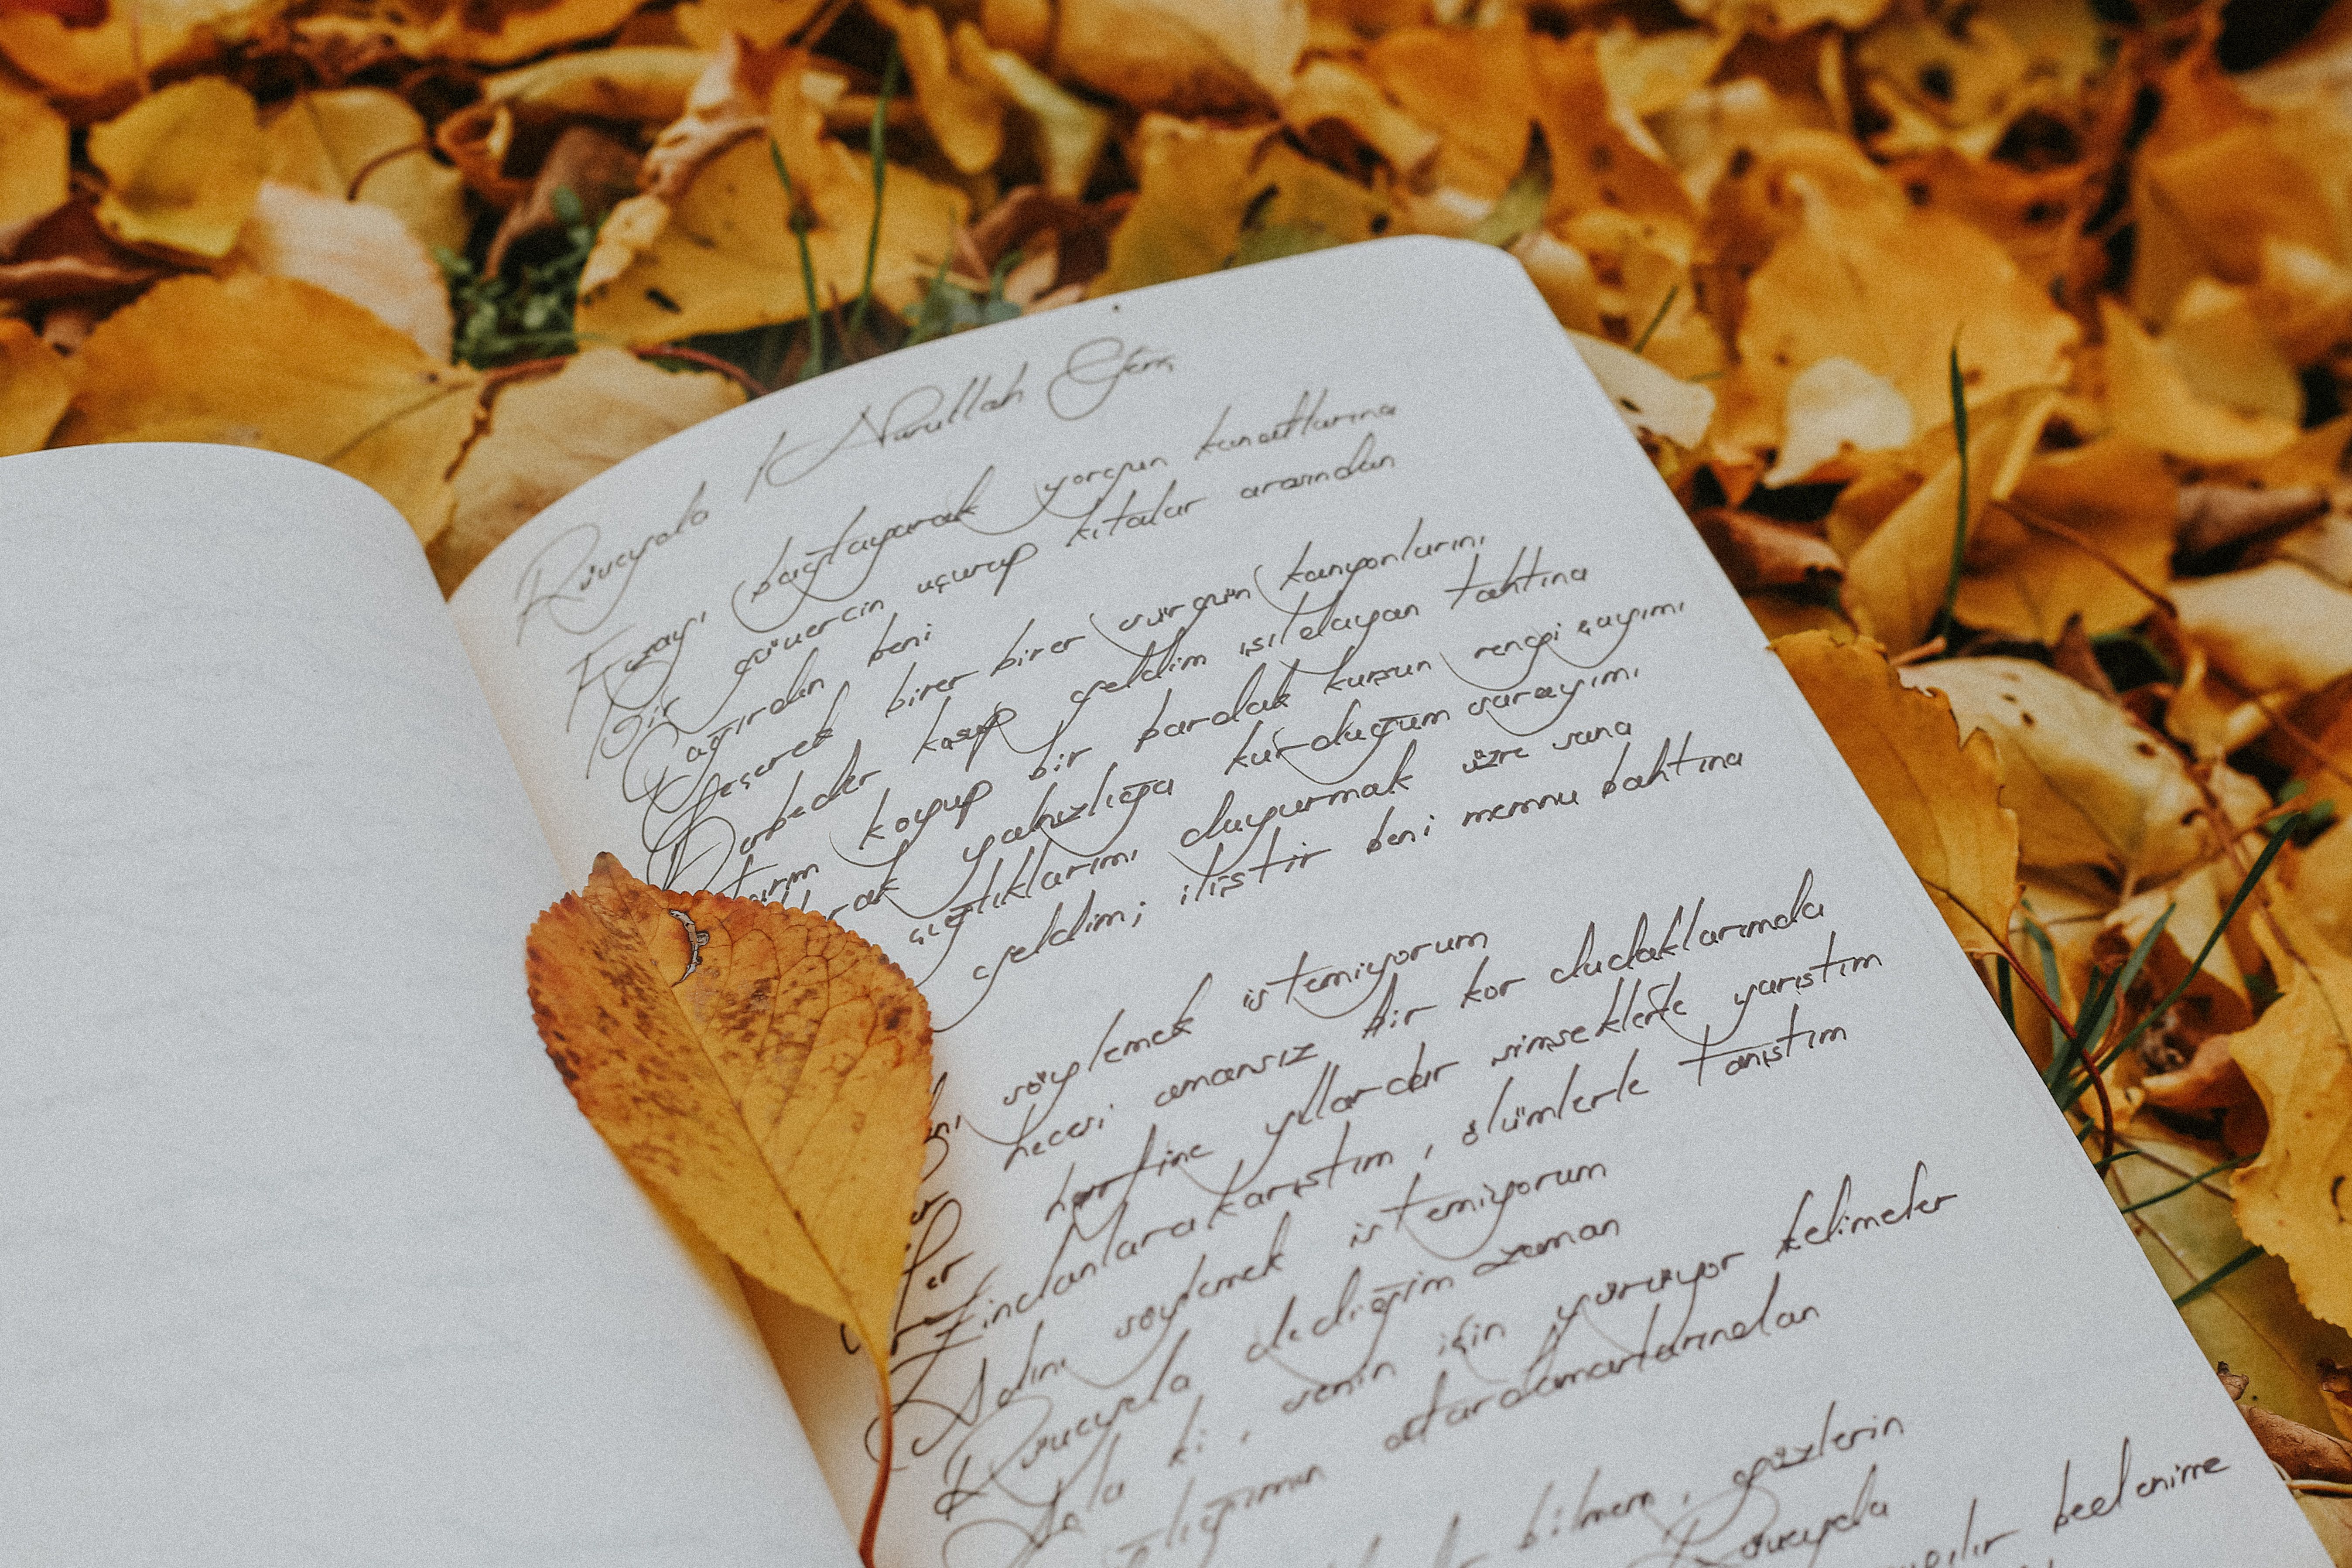 Rüveyda / Nurullah Genç
Kuzayı bağlayarak yorgun kanatlarına
Bir güvercin uçurup kıtalar arasından
Çağırdın beni
Geçerek birer birer sürgün kanyonlarını
Derbeder koşup geldim ışıldayan tahtına
koyup bir bardak kurşun rengi çayımı
yalnızlığa kurduğum sarayımı
çığlıklarımı duyurmak üzre sana
geldim; iliştir beni memnu bahtına
söylemek istemiyorum
hecesi amansız bir kor dudaklarımda
harfine yıllardır şimşeklerle yarıştım
Zindanlara karıştım, ölümlerle tanıştım
Adını söylemek istemiyorum
Rüveyda dediğim zaman
Anla ki, senin için yürüyor kelimeler
atardamarlarından
bilmem, gözlerin
Rüveyda
bedenime